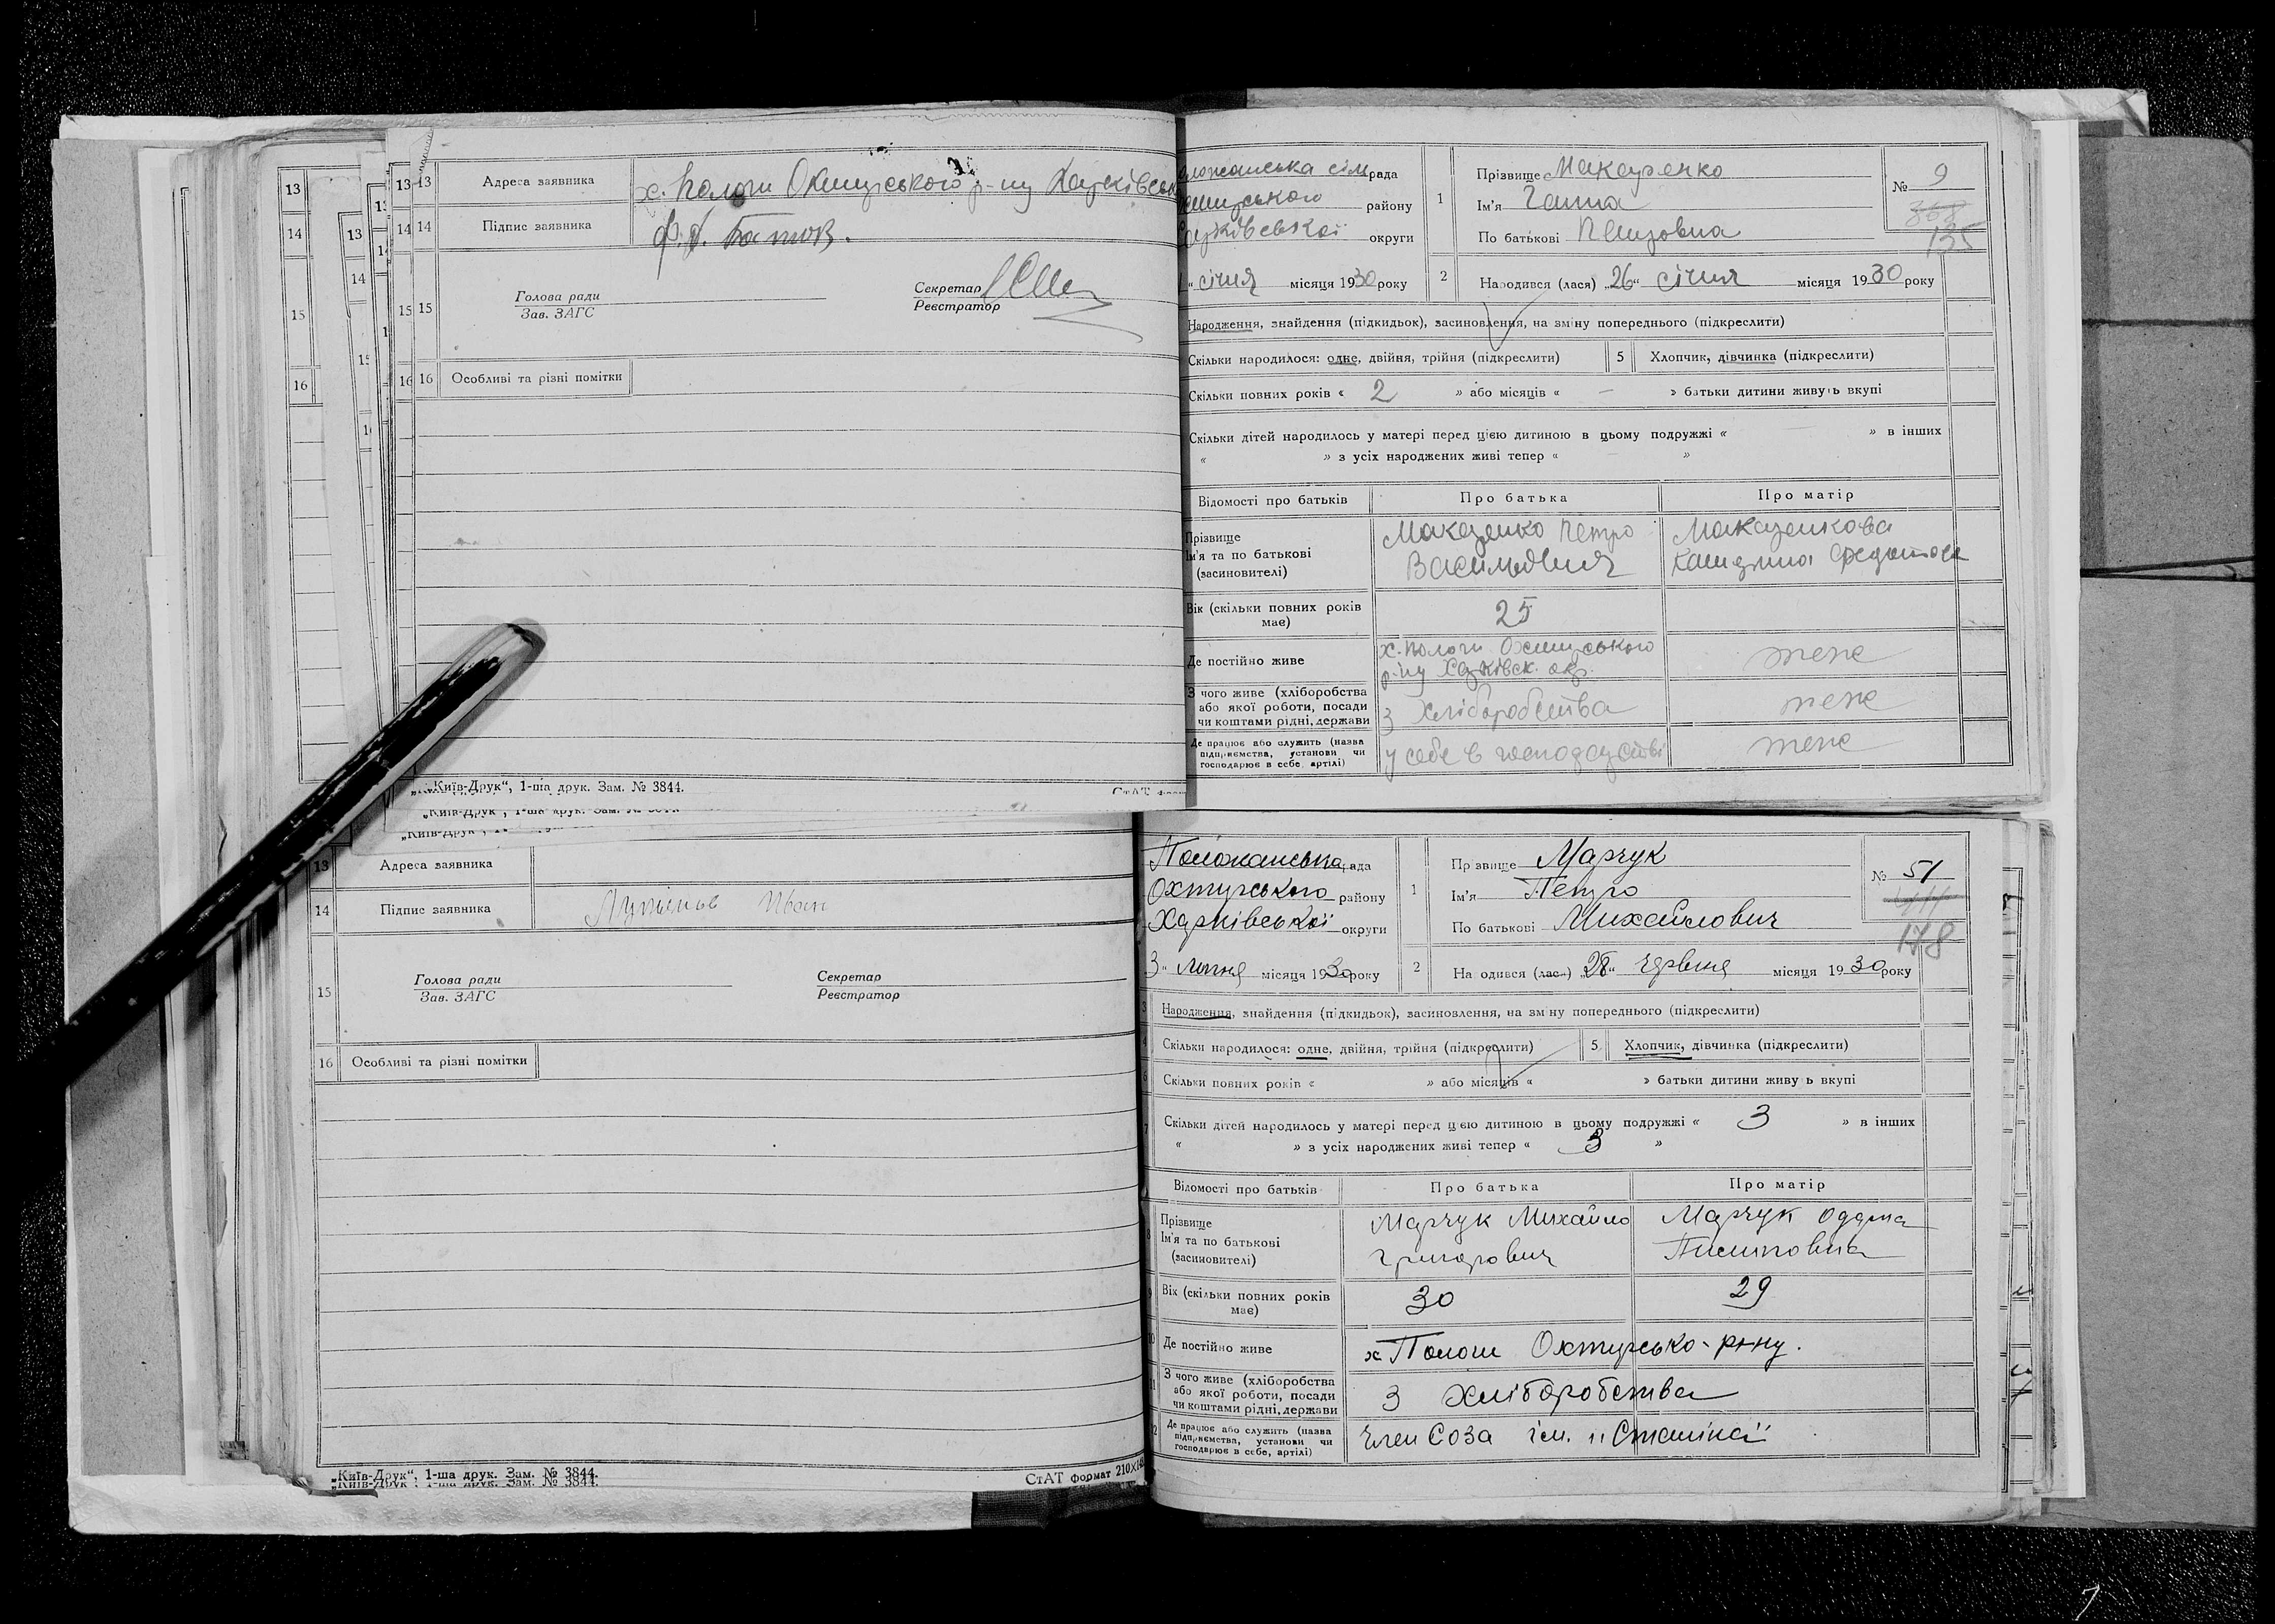 13 13 Адреса заявника х. Пологи Охтирського р-ну Харківськ
14 14 Підпис заявника
15 15 Голова ради
Зав. ЗАГС
Секретар
Реєстратор
16 16 Особливі та різні помітки
„Київ-Друк“, 1-ша друк. Зам. № 3844.
рада
району
округи
" січня місяця 1930 року
1 Прізвище Макаренко
Ім'я Ганна
По батькові Петровна
№ 9
135
2 Народився (лася) „26“ січня місяця 1930 року
Народження, знайдення (підкидьок), засиновлення, на зміну попереднього (підкреслити)
Скільки народилося: одне, двійня, трійня (підкреслити) 5 Хлопчик, дівчинка (підкреслити)
Скільки повних років « 2 » або місяців « — » батьки дитини живуть вкупі
Скільки дітей народилось у матері перед цією дитиною в цьому подружжі « » в інших
« » з усіх народжених живі тепер « »
Відомості про батьків Про батька Про матір
Прізвище
Ім'я та по батькові
(засиновителі)
Макаренко Петро
Васильович
Макаренкова
Вік (скільки повних років
має)
25
Де постійно живе
х. Пологи Охтирського
р-ну Харківск. окр.
теж
З чого живе (хліборобства
або якої роботи, посади
чи коштами рідні, держави
з хліборобства
теж
Де працює або служить (назва
підприємства, установи чи
господарює в себе, артілі)
у себе в господарстві
теж
13 Адреса заявника
14 Підпис заявника Іван
15 Голова ради
Зав. ЗАГС
Секретар
Реєстратор
16 Особливі та різні помітки
„Київ-Друк“, 1-ша друк. Зам. № 3844.
СтАТ формат 210×1
Положанська рада
Охтирського району
Харківської округи
3 " липня місяця 1930 року
1 Прізвище Марчук
Ім'я Петро
По батькові Михайлович
№ 51
178
2 Народився (лася) „28“ червня місяця 1930 року
3 Народження, знайдення (підкидьок), засиновлення, на зміну попереднього (підкреслити)
4 Скільки народилося: одне, двійня, трійня (підкреслити) 5 Хлопчик, дівчинка (підкреслити)
6 Скільки повних років « » або місяців « » батьки дитини живуть вкупі
7 Скільки дітей народилось у матері перед цією дитиною в цьому подружжі « 3 » в інших
« » з усіх народжених живі тепер « 3 »
Відомості про батьків Про батька Про матір
8 Прізвище
Ім'я та по батькові
(засиновителі)
Марчук Михайло
Григорович
Марчук
Вік (скільки повних років
має)
30 29
Де постійно живе х Пологи Охтирсько- р-ну.
З чого живе (хліборобства
або якої роботи, посади
чи коштами рідні, держави
З хліборобства
Де працює або служить (назва
підприємства, установи чи
господарює в себе, артілі)
Член СОЗа ім. „Сталіна"